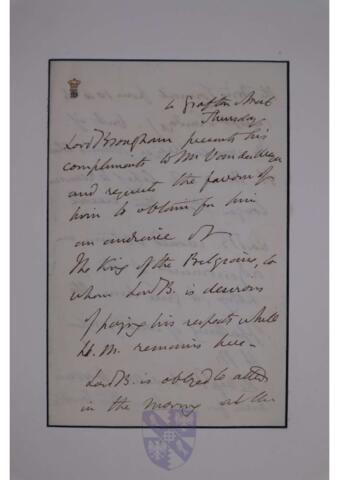 B
4 Grafton Street
Thursday
Lord Brougham presents his
compliments to Mr Vande Weyer
and requests the favour of
him to obtain for him
an audience of
The King of the Belgians, to
whom Lord B. is desirous
of paying his respects while
H. M. remains here –
Lord B. is obliged to attend
in the morng at the